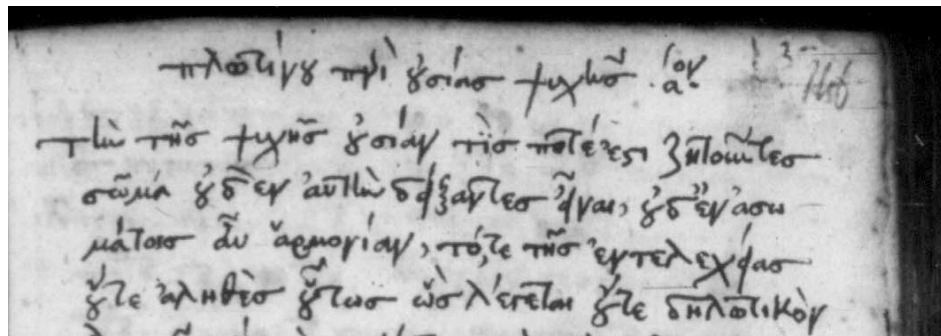 πλωτίνου περὶ οὐσίας ψυχῆς. α^ον
τὴν τῆς ψυχῆς οὐσίαν τίς ποτέ ἐστι ζητοῦντες
σῶμα οὐδὲν αὐτὴν δείξαντες εἶναι, οὐδ' ἐν ἀσω
μάτοις αὖ ἁρμονίαν, τό, τε τῆς ἐντελεχείας
οὔτε ἀληθὲς οὕτως ὡς λέγεται οὔτε δηλωτικὸν